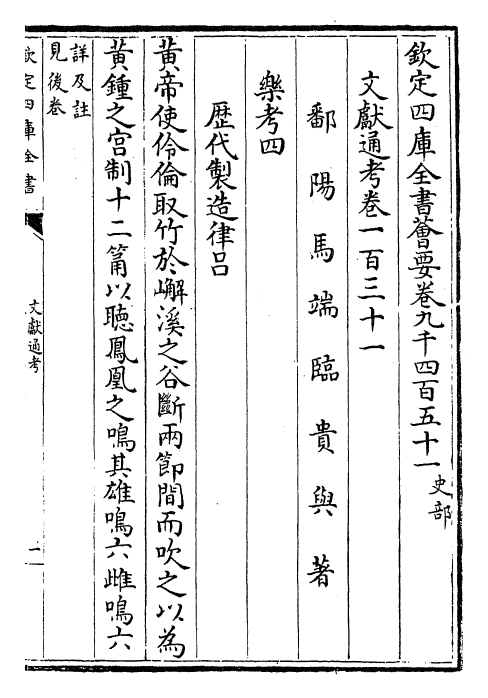 欽定四庫全書薈要卷九千四百五十一史部
文獻通考卷一百三十一
鄱陽馬端臨貴與著
樂考四
歴代製造律呂
黄帝使伶倫取竹於嶰溪之谷斷兩節間而吹之以為
黄鍾之宫制十二筩以聴鳳凰之鳴其雄鳴六雌鳴六
詳及註
見後卷
欽定四庫全書
文獻通考
一